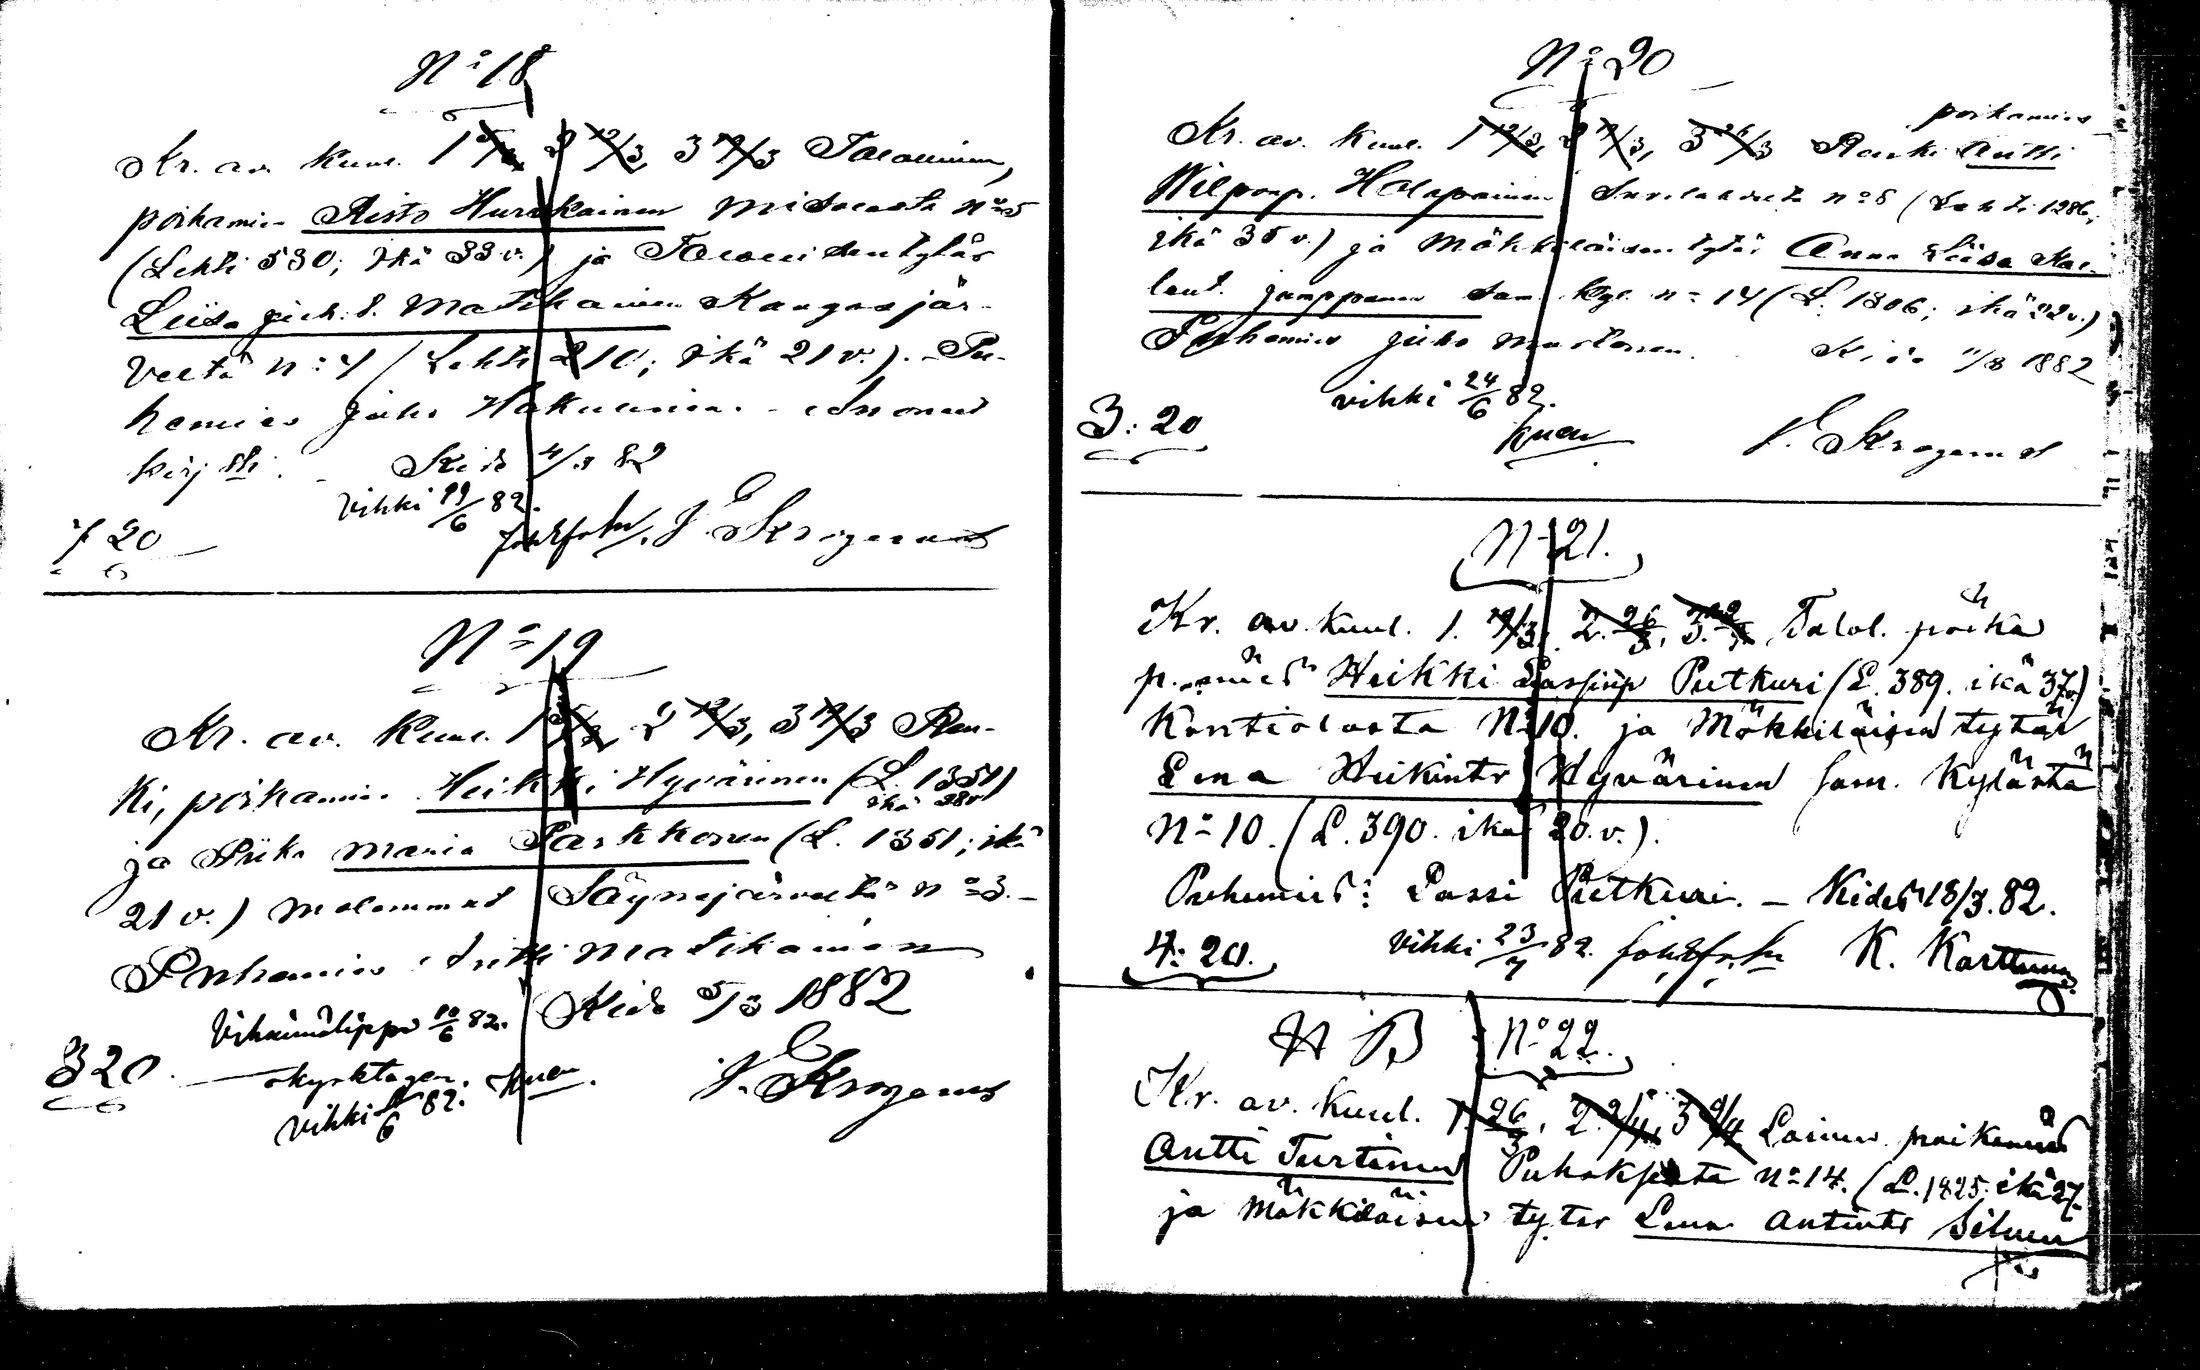 N:o 18
Kr. av. kuul. 1 5/3 2 12/3, 3 19/3 Talollinen,
poikamies Risto Hurskainen
(Lehti 530; ikä 33 v.) ja Talollisentytär
Liisa Juh. t. Matikainen Kangasjär-
veltä N:o 4 (Lehti 210; ikä 21 v.). - Pu-
hemies Juho Hakulinen. -
kirj.
Kide 4/3 82
Vihki 19/6 82.
7 20
N:o 19
Kr. av. kuul. 1 5/3 2 12/3, 3 19/3 Ren-
ki, poikamies Heikki Hyvärinen (L. 1351)
ikä 28 v
ja Piika Maria Parkkonen (L. 1351; ikä
21 v.) molemmat Säynejärveltä N:o 3. -
Puhemies Antti Matikainen
Kide 5/3 1882
10/6 82.
3 20
J. E. Krogerus
vihki /6 82.
N:o 20
poikamies
Kr. av. kuul. 1 12/3, 2 19/3, 3 26/3 Renki Antti
Wilpонp. Holopainen Suorlahdelta N:o 8 (Lehti 1286;
ikä 35 v.) ja Mökkiläisen tytär Anna Liisa Kal-
leent. Jumppanen sam. kyl. N:o 14 (L. 1306; ikä 22 v.)
Puhemies Juho Mustonen. Kide 11/3 1882
vihki 24/6 82.
3: 20
J. E. Krogerus
N:o 21.
Kr. av. kuul. 1. 19/3, 2. 26/3, 3. Talol. poika
p. mies Heikki Lassinp Putkuri (L. 389. ikä 37 v)
Kontiolasta N:o 10. ja Mökkiläisen tytär
Lena Heikintr Hyvärinen sam. kylästä
N:o 10. (L. 390. ikä 20. v.).
Puhemies: Lassi Putkuri. - Kides 18/3. 82.
4: 20. Vihki 23/7 82. K. Karttunen
N B N:o 22.
Kr. av. kuul. 1. 26/3, 2. 2/4, 3 9/4 Loinen poikamies
Antti Turtinen N:o 14. (L. 1825. ikä 27.
ja Mökkiläisen tytär Lena Antintr Silven